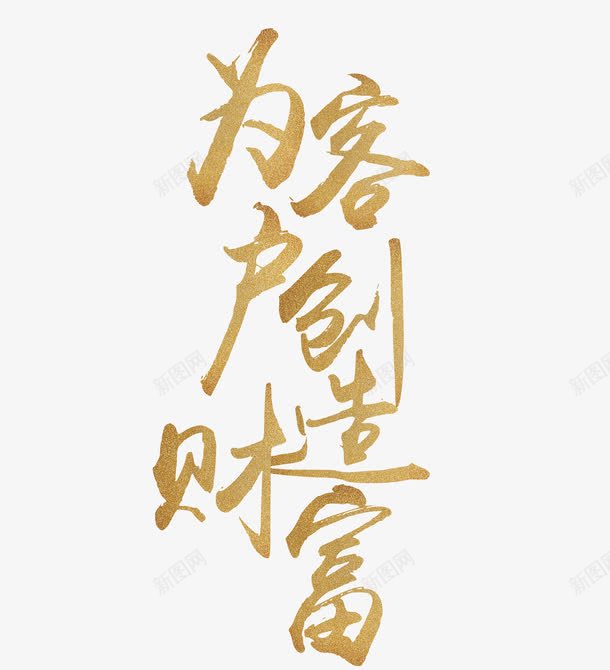 为客
户创
造
财富
新图网
新图网
新图网
新图网
新图网
新图网
新图网
新图网
新图网